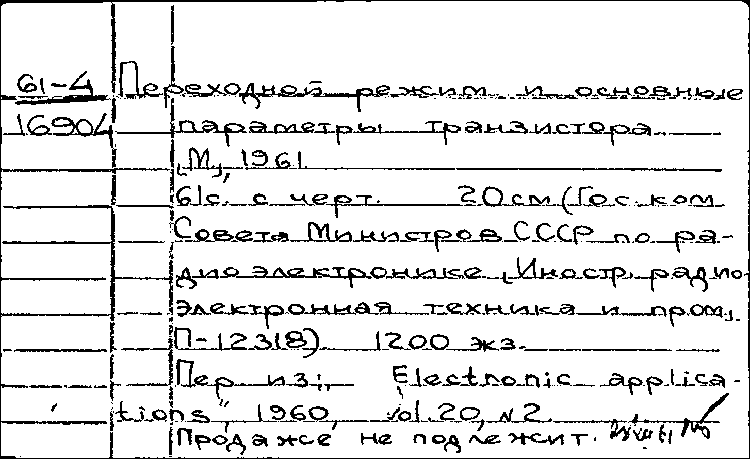 61-4 Переходной режим и основные
16904 параметры транзистора.
[М], 1961.
61с. с черт. 20см (Гос. ком.
Совета Министров СССР по ра-
диоэлектронике [Иностр. радио-
электронная техника и пром].
П-12318). 1200 экз.
Пер из:, Electronic applica-
tions", 1960, vol.20, N2.
Продаже не подлежит.